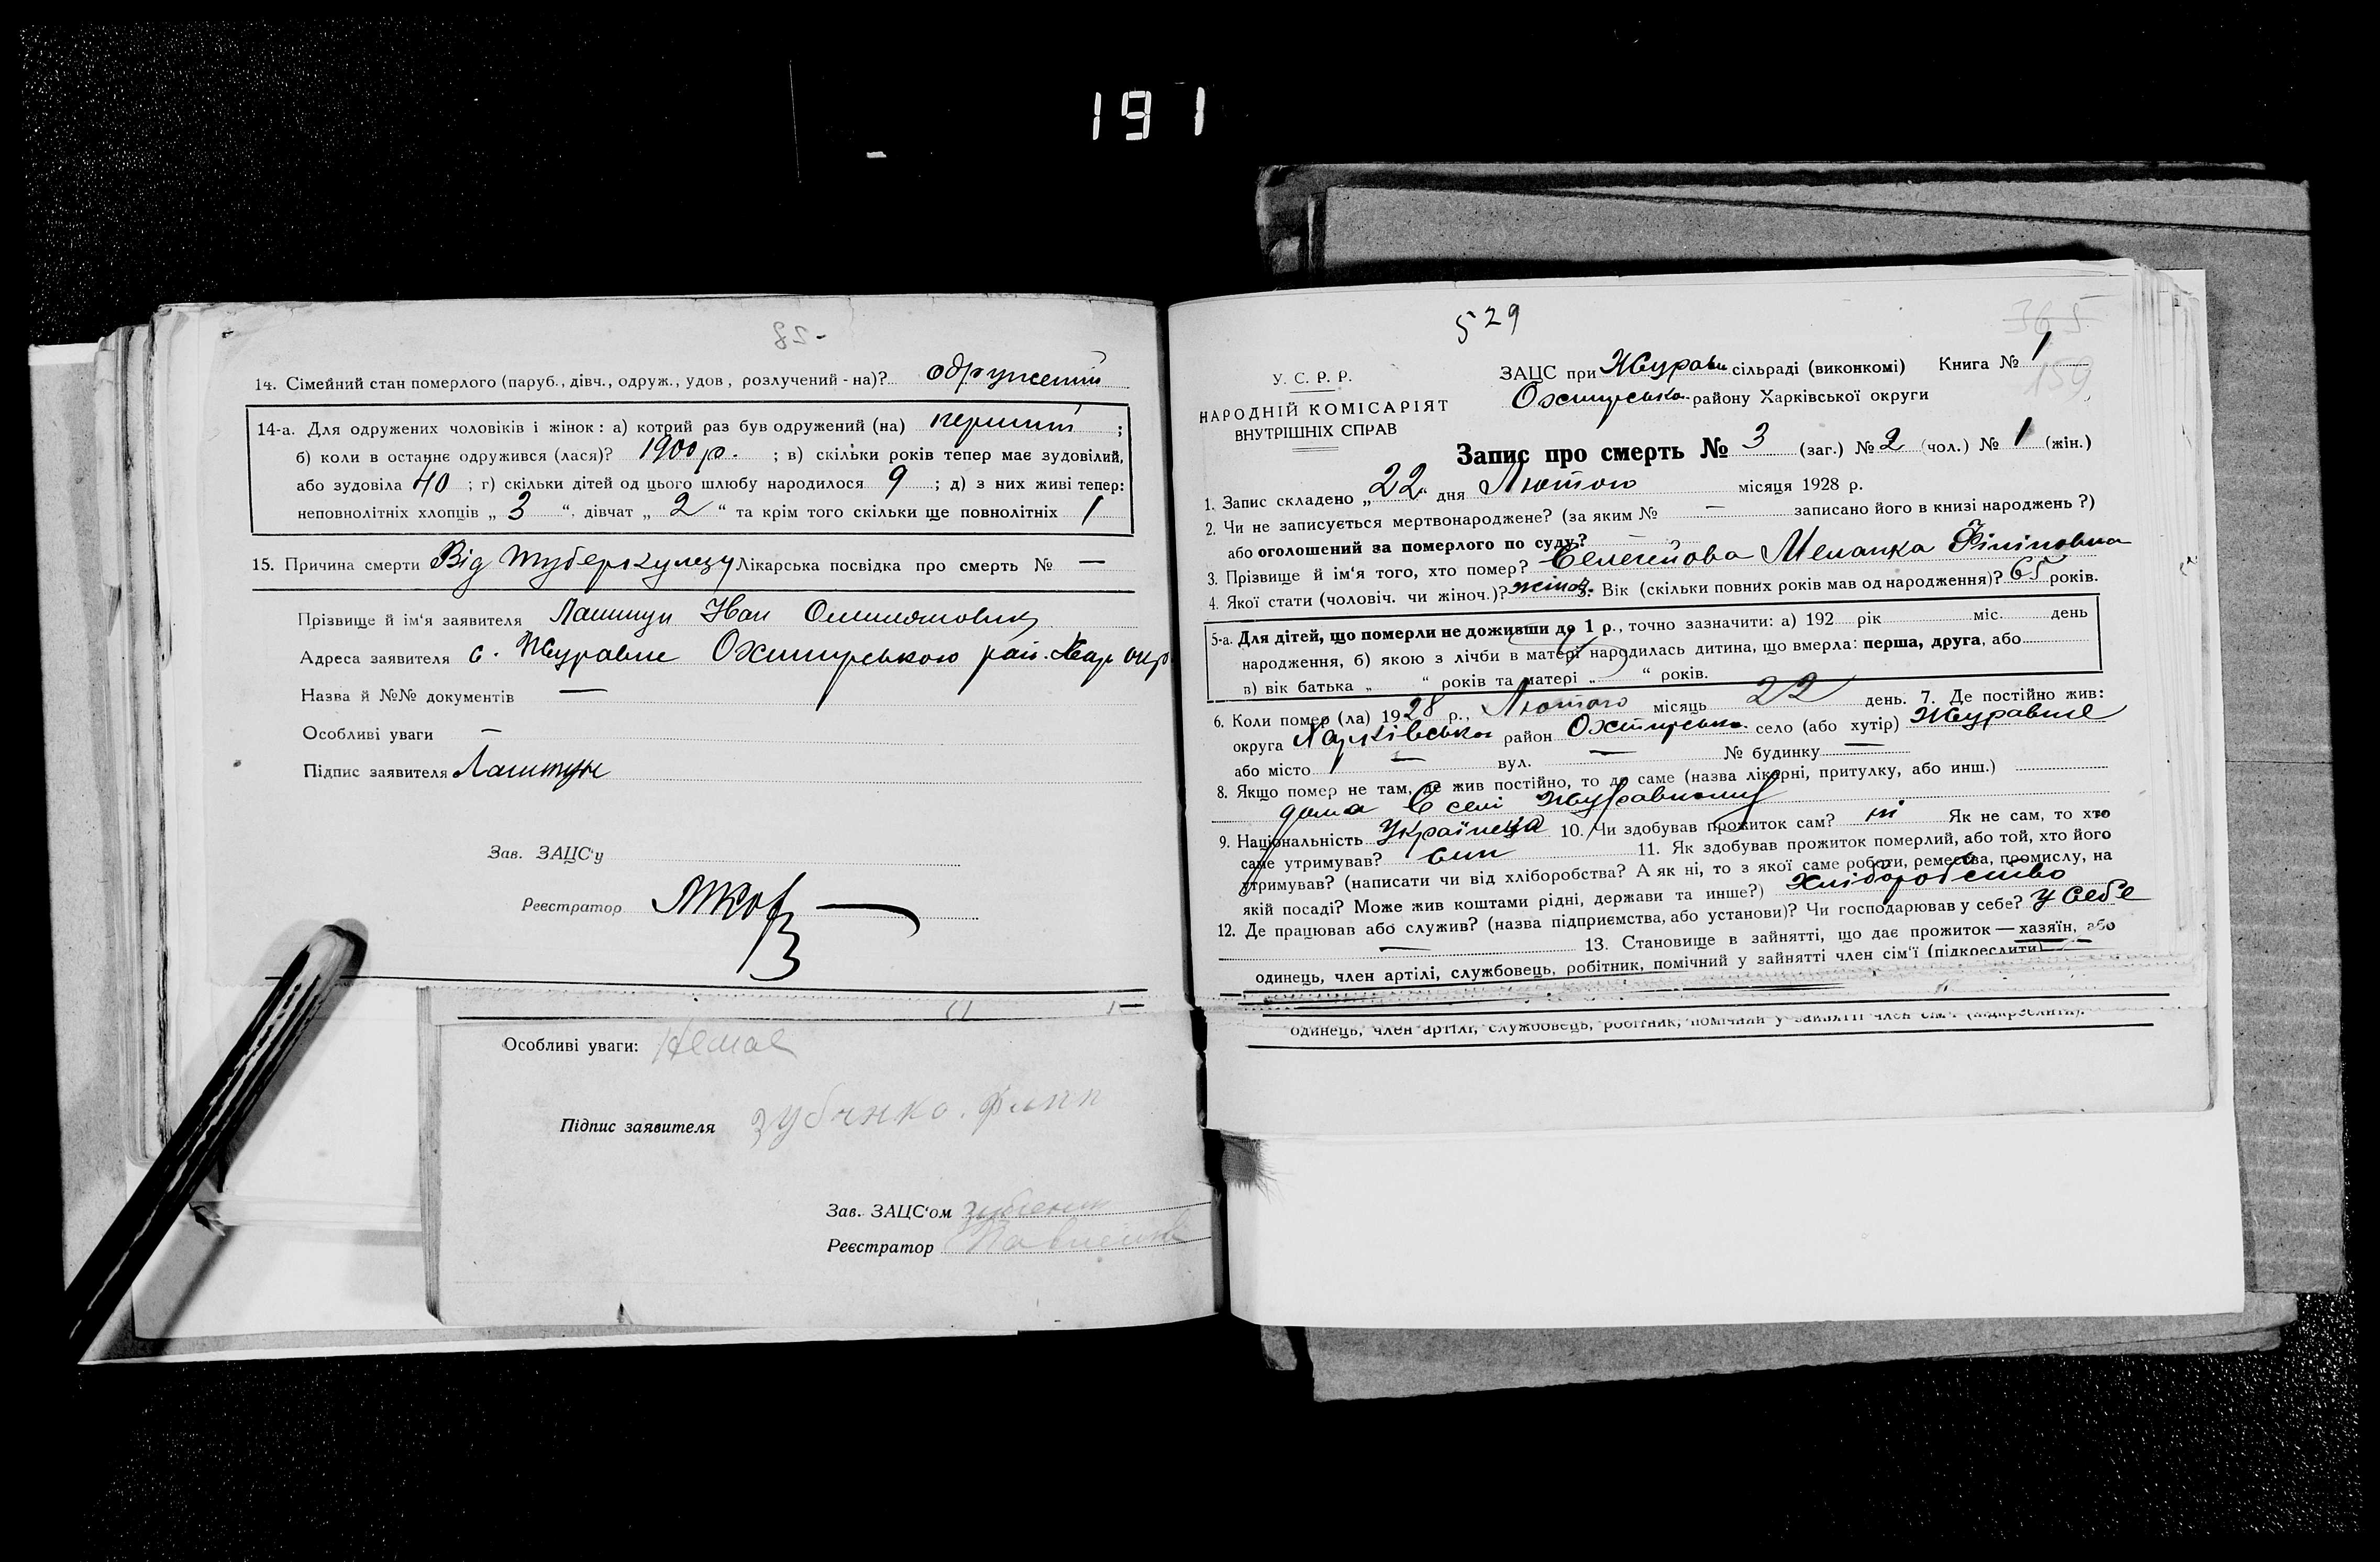 191
14. Сімейний стан померлого (паруб., дівч., одруж., удов, розлучений-на)? одружений
14-а. Для одружених чоловіків і жінок: а) котрий раз був одружений (на) перший ;
б) коли в останнє одружився (лася)? 1900 р. ; в) скільки років тепер має зудовілий,
або зудовіла 40 ; г) скільки дітей од цього шлюбу народилося 9 ; д) з них живі тепер:
неповнолітніх хлопців „ 3 “, дівчат „ 2 “ та крім того скільки ще повнолітніх 1
15. Причина смерти Від туберкульозу Лікарська посвідка про смерть № —
Прізвище й ім'я заявителя Лашшун Іван
Адреса заявителя с. Журавне Охтирського рай. Хар окр
Назва й №№ документів —
Особливі уваги —
Підпис заявителя
Зав. ЗАЦС'у
Реєстратор
Особливі уваги: Немае
Підпис заявителя
Зав. ЗАЦС'ом
Реєстратор
529
365
159
У. С. Р. Р.
НАРОДНІЙ КОМІСАРІЯТ
ВНУТРІШНІХ СПРАВ
ЗАЦС при Журавн сільраді (виконкомі) Книга № 1
Охтирсько району Харківської округи
Запис про смерть № 3 (заг.) № 2 (чол.) № 1 (жін.)
1. Запис складено „22“ дня Лютого місяця 1928 р.
2. Чи не записується мертвонароджене? (за яким № — записано його в книзі народжень?)
або оголошений за померлого по суду?
3. Прізвище й ім'я того, хто помер? Меланка Філіповна
4. Якої стати (чоловіч. чи жіноч.)? жіноч. Вік (скільки повних років мав од народження)? 65 років.
5-а. Для дітей, що померли не доживши до 1 р., точно зазначити: а) 192 рік міс. день
народження, б) якою з лічби в матері народилась дитина, що вмерла: перша, друга, або
в) вік батька „ “ років та матері „ “ років.
6. Коли помер (ла) 1928 р., Лютого місяць 22 день. 7. Де постійно жив:
округа Харківська район Охтирсько село (або хутір) Журавне
або місто — вул. — № будинку —
8. Якщо помер не там, де жив постійно, то де саме (назва лікарні, притулку, або инш.)
дома в селі
9. Національність Українка 10. Чи здобував прожиток сам? ні Як не сам, то хто
саме утримував? син 11. Як здобував прожиток померлий, або той, хто його
утримував? (написати чи від хліборобства? А як ні, то з якої саме роботи, ремества, промислу, на
якій посаді? Може жив коштами рідні, держави та инше?) Хліборобство
12. Де працював або служив? (назва підприємства, або установи)? Чи господарював у себе? у себе
— 13. Становище в зайнятті, що дає прожиток — хазяїн, або
одинець, член артілі, службовець, робітник, помічний у зайнятті член сім'ї (підкреслити)
одинець, член артілі, службовець, робітник, помічний у зайнятті член сім'ї (підкреслити).